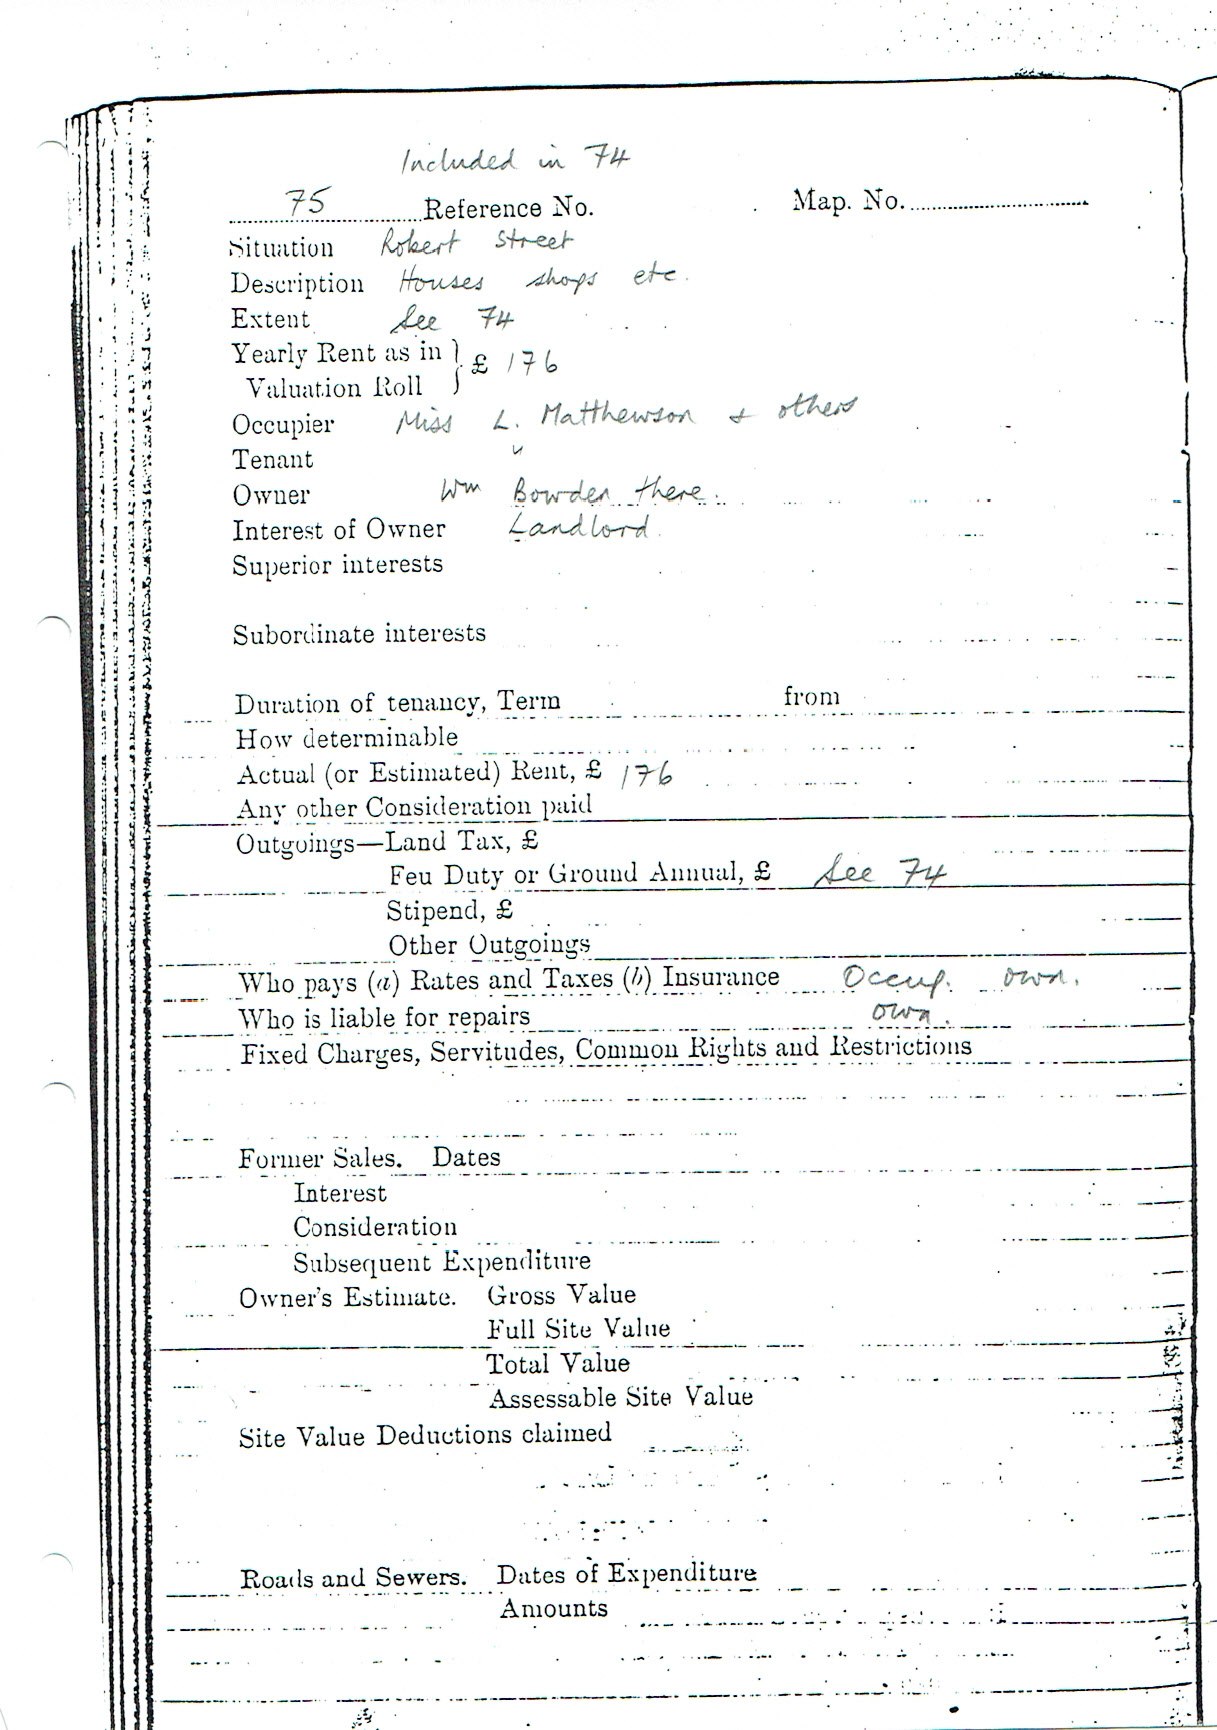 Included in 74
75 Reference No. Map. No.
Situation Robert Street
Description Houses shops etc.
Extent See 74
Yearly Rent as in } £ 176
Valuation Roll
Occupier Miss L. Matthewson & others
Tenant "
Owner Wm Bowden there.
Interest of Owner Landlord.
Superior interests
Subordinate interests
Duration of tenancy, Term from
How determinable
Actual (or Estimated) Rent, £ 176
Any other Consideration paid
Outgoings—Land Tax, £
Feu Duty or Ground Annual, £ See 74
Stipend, £
Other Outgoings
Who pays (a) Rates and Taxes (b) Insurance Occup. own.
Who is liable for repairs own.
Fixed Charges, Servitudes, Common Rights and Restrictions
Former Sales. Dates
Interest
Consideration
Subsequent Expenditure
Owner's Estimate. Gross Value
Full Site Value
Total Value
Assessable Site Value
Site Value Deductions claimed
Roads and Sewers. Dates of Expenditure
Amounts